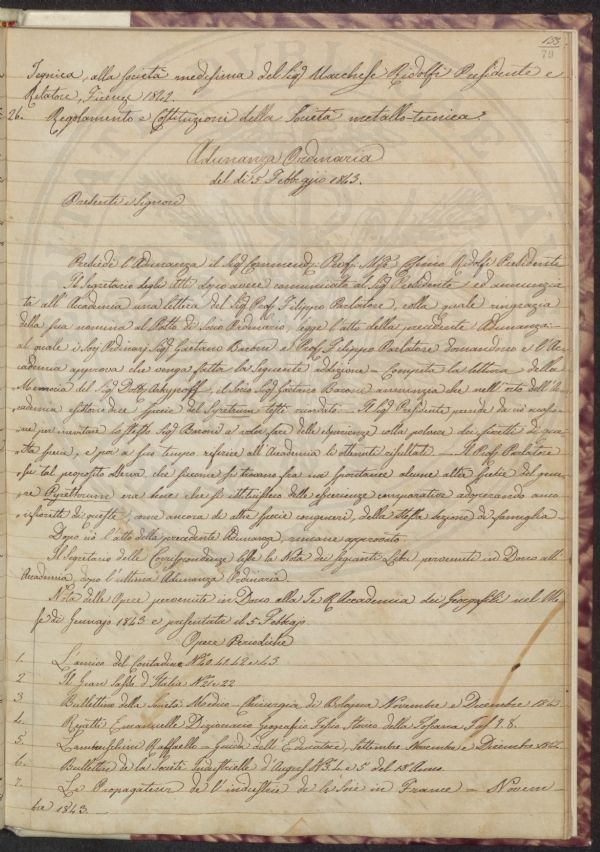 153
79
Tecnica, alla Società medesima del Sig. Marchese Ridolfi Presidente e
Relatore, Firenze 1842.
26. Regolamento e Costituzioni della Società metallo-tecnica.
Adunanza Ordinaria
del dì 5 Febbrajo 1843.
Presenti i Signori
Presiede l'Adunanza il Sig. Commend. Prof. Cosimo Ridolfi Presidente
Il Segretario degli Atti dopo avere comunicato al Sig. Presidente ed annunzia
te all'Accademia una lettera del Sig. Prof. Filippo Parlatore, colla quale ringrazia
della sua nomina al Posto di Socio Ordinario, legge l'atto della precedente Adunanza
al quale i Sig. Ordinarj Sig. Gaetano Baroni e Prof. Filippo Parlatore domandono e l'Ac
cademia approva che venga fatta la seguente addizione — Compita la lettura della
Memoria del Sig. Dott. il Socio Sig. Gaetano Baroni annunzia che nell'orto dell'Ac
cademia esistono due specie del Pyretrum testè ricordato — Il Sig. Presidente prende da ciò occasio
ne per invitare lo stesso Sig. Baroni a voler fare delle esperienze colla polvere dei fioretti di que
ste specie, e poi a suo tempo referire all'Accademia li ottenuti resultati — Il Prof. Parlatore
su tal proposito rileva, che siccome si trovano fra noi spontanee alcune altre specie del gene
re Pyrethrum era bene che si istituissero delle esperienze comparative adoprando anco
i fioretti di queste, come ancora di altre specie congeneri, della stessa sezione di famiglia
Dopo ciò l'atto della precedente Adunanza, rimane approvato.
Il Segretario delle Corrispondenze lesse la Nota dei seguenti Libri pervenuti in Dono all'
Accademia, dopo l'ultima Adunanza Ordinaria.
Nota delle Opere pervenute in Dono alla I. e R. Accademia dei Georgofili nel Me
se di Gennajo 1843 e presentate il 5 Febbrajo
Opere Periodiche
1. L'amico del Contadino Nri. 40. 41. 42 e 43.
2 Il Gran Sasso d'Italia Nri. 21 e 22
3 Bullettino della Società Medico-Chirurgica di Bologna Novembre e Decembre 1842.
4. Repetti Emanuelle Dizionario Geografico Fisico Storico della Toscana Fas. 7. 8.
5. Lambruschini Raffaello — Guida dell'Educatore, Settembre Novembre e Dicembre 1842.
6. Bulletin de la Société Industrielle d'Angers Nri. 3. 4 e 5 del 13° Anno
7. Le Propagateur de l'industrie de la Soie in France — Novem-
bre 1843.